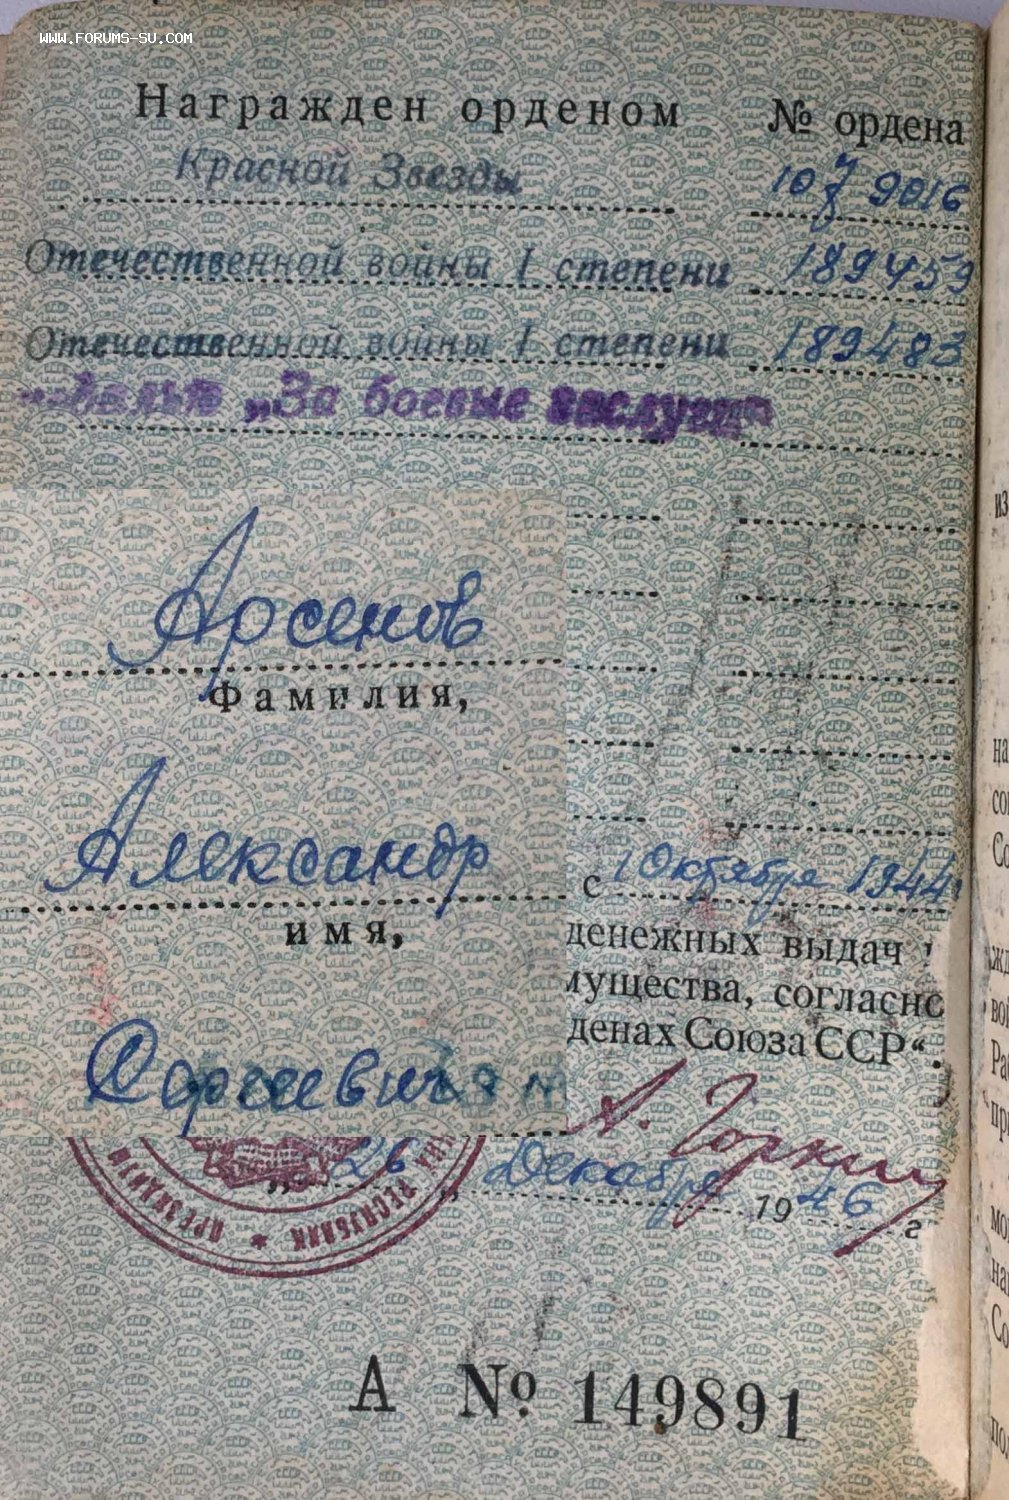 WWW.FORUMS-SU.COM
Награжден орденом № ордена
Красной Звезды
Отечественной войны I степени 189459
Отечественной войны I степени 189483
„За боевые заслуги“
Арсенов
Фамилия,
Александр
имя,
Сергеевич
с 1 Октября 1944
денежных выдач
мущества, согласно
денах Союза ССР“.
А. Горкин
„26 „ Декабря 1946 г
РЕСПУБЛИК * ПРЕЗИДИУМ
А № 149891